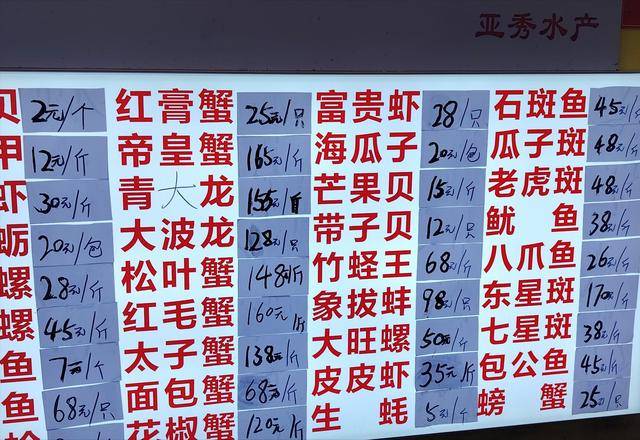 亚秀水产
贝 2元/个 红膏蟹 25元/只 富贵虾 28/只 石斑鱼 45元/斤
甲 12元/斤 帝皇蟹 165元/斤 海瓜子 20元/包 瓜子斑 48元/斤
虾 30元/斤 青大龙 155元/ 芒果贝 15元/斤 老虎斑 48元/斤
蛎 20元/包 大波龙 128元/只 带子贝 12元/只 鱿鱼 38元/斤
螺 28元/斤 松叶蟹 148/斤 竹蛏王 68/斤 八爪鱼 26元/斤
螺 45元/斤 红毛蟹 160元/斤 象拔蚌 98元/斤 东星斑 170元/斤
鱼 7元/斤 太子蟹 138元/斤 大旺螺 50元/斤 七星斑 38元/斤
鱼 68元/只 面包蟹 68元/斤 皮皮虾 35元/斤 包公鱼 45元/斤
花椒蟹 120元/斤 生蚝 5元/个 螃蟹 25元/只